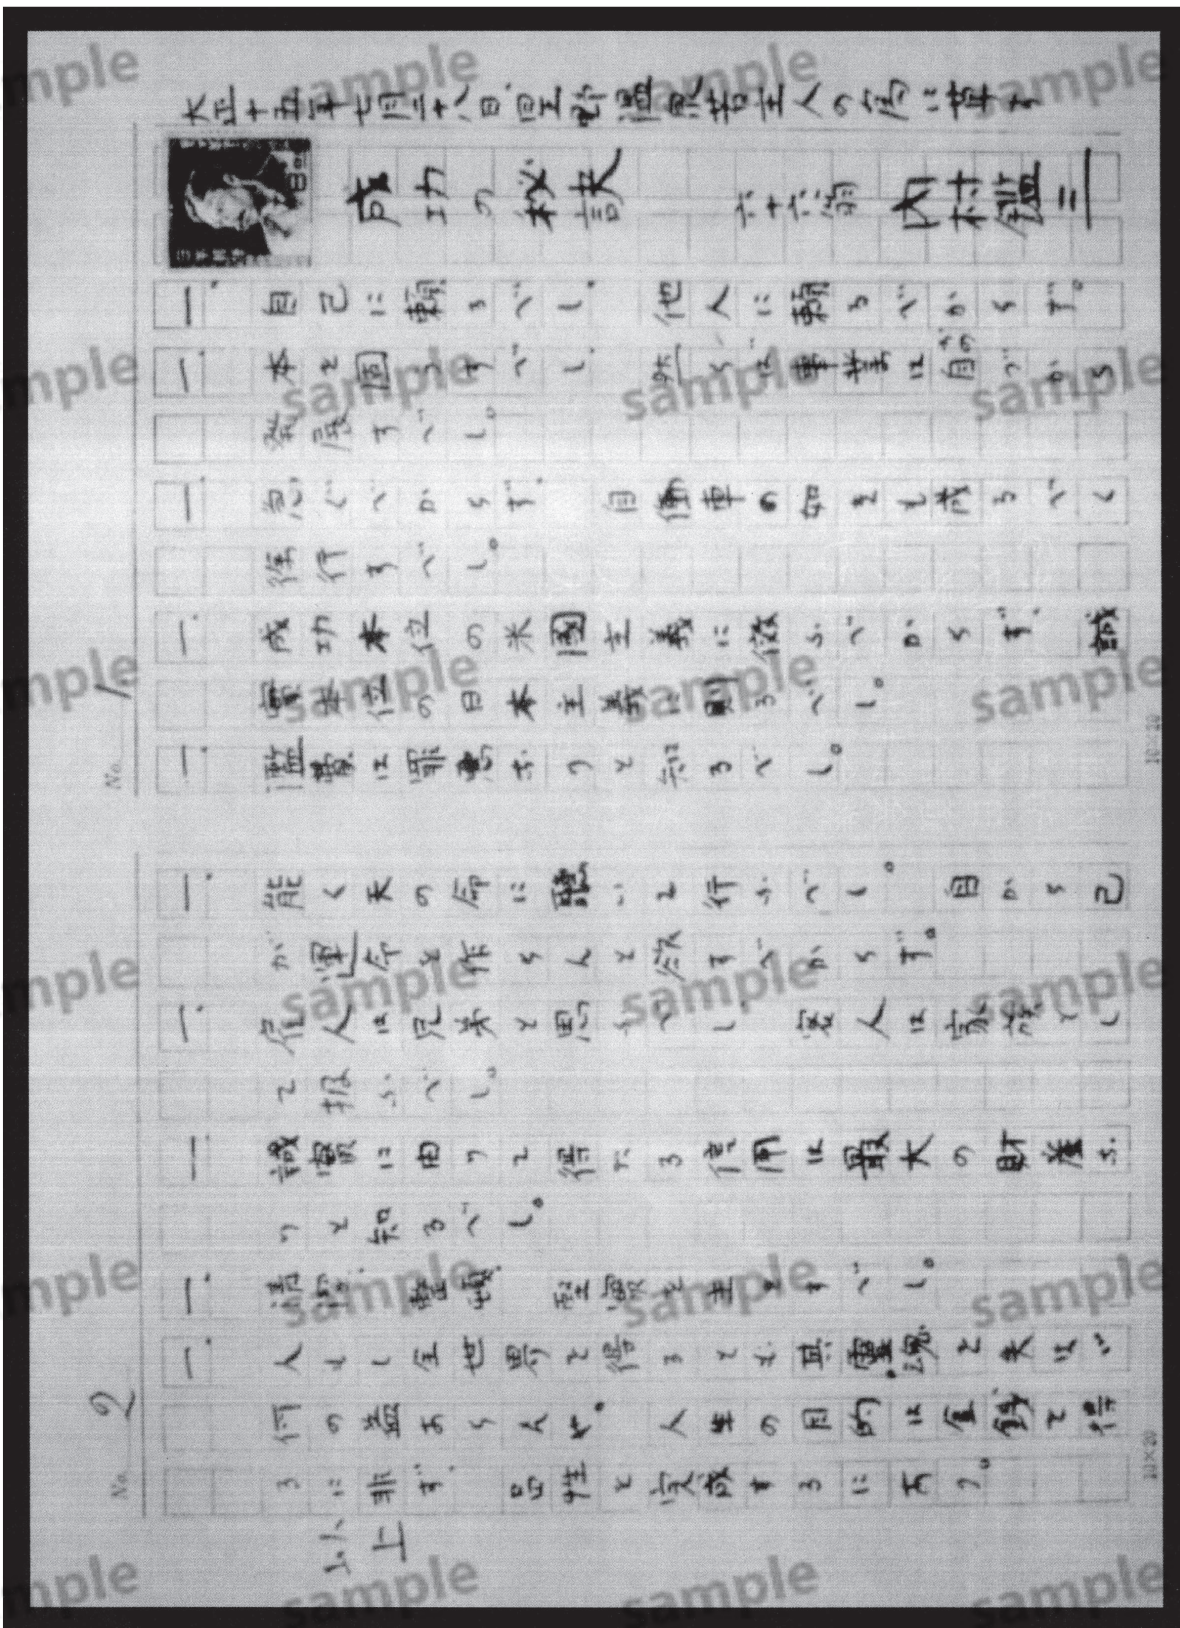 大正十五年七月二十八日、星野温泉若主人の為に草す
成功の秘訣 六十六翁 内村鑑三
一、自己に頼るべし、他人に頼るべからず。
一、本を固うすべし、然らば事業は自づから
發展すべし。
一、急ぐべからず、自働車の如きも成るべく
徐行すべし。
一、成功本位の米國主義に倣ふべからず、誠
實本位の日本主義に則るべし。
一、濫費は罪悪なりと知るべし。
No. 1
10×20
一、能く天の命に聽いて行ふべし。自から己
が運命を作らんと欲すべからず。
一、雇人は兄弟と思ふべし、客人は家族とし
て扱ふべし。
一、誠實に由りて得たる信用は最大の財産な
りと知るべし。
一、清潔、整頓、堅實を主とすべし。
一、人もし全世界を得るとも其靈魂を失はゞ
何の益あらんや。人生の目的は金銭を得
るに非ず、品性を完成するにあり。
以上
No. 2
10×20
sample